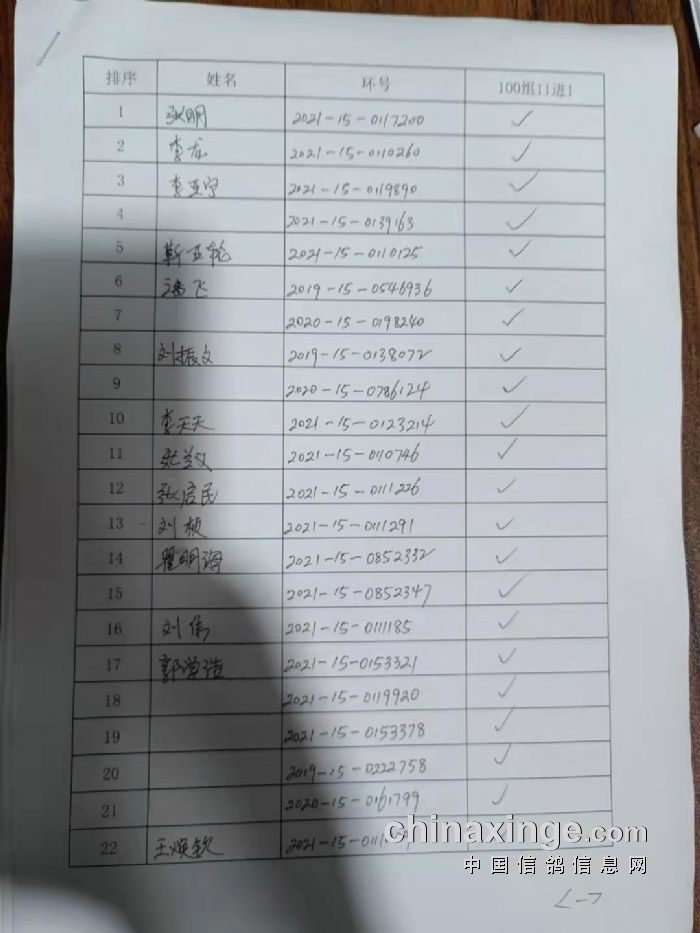 排序 姓名 环号 100组11进1
1 张明 2021-15-0117200 ✓
2 李龙 2021-15-0110260 ✓
3 李亚宁 2021-15-0119890 ✓
4 2021-15-0139163 ✓
5 靳亚轮 2021-15-0110125 ✓
6 潘飞 2019-15-0546936 ✓
7 2020-15-0198240 ✓
8 刘振文 2019-15-0138072 ✓
9 2020-15-0786124 ✓
10 李天天 2021-15-0123214 ✓
11 2021-15-0110746 ✓
12 张启民 2021-15-0111226 ✓
13 刘桢 2021-15-0111291 ✓
14 瞿明海 2021-15-0852332 ✓
15 2021-15-0852347 ✓
16 刘伟 2021-15-0111185 ✓
17 郭学浩 2021-15-0153321 ✓
18 2021-15-0119920 ✓
19 2021-15-0153378 ✓
20 2019-15-0222758 ✓
21 2020-15-0161799 ✓
22 王焕钦 2021-15-
chinaxinge.com
中国信鸽信息网